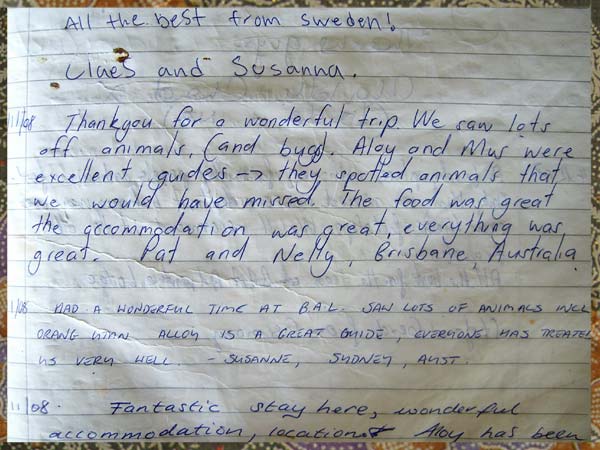 All the best from Sweden!
Claes and Susanna.
11/08 Thankyou for a wonderful trip. We saw lots
off animals, (and bugs). Aloy and Mus were
excellent guides → they spotted animals that
we would have missed. The food was great
the accommodation was great, everything was
great. Pat and Nelly, Brisbane, Australia
1/08 HAD A WONDERFUL TIME AT B.A.L. SAW LOTS OF ANIMALS INCL
ORANG UTAN ALLOY IS A GREAT GUIDE, EVERYONE HAS TREATED
US VERY WELL. - SUSANNE, SYDNEY, AUST.
11/08. Fantastic stay here, wonderful
accommodation, location Aloy has been